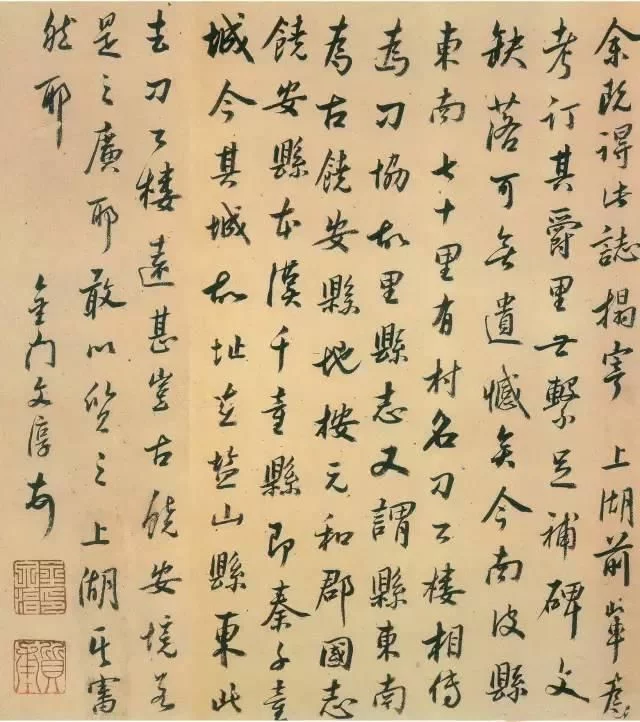 余既得此誌搨寄上湖前輩處
考订其爵里世繫足補碑文
缺落可無遺憾矣今南皮縣
東南七十里有村名刀公樓相傳
為刀協故里縣志又謂縣東南
為古饒安縣地按元和郡國志
饒安縣本漢千童縣即秦千童
城今其城故址在盐山縣東此
去刀公樓遠甚豈古饒安境若
是之廣耶敢以质之上湖其審
然耶
金门文淳